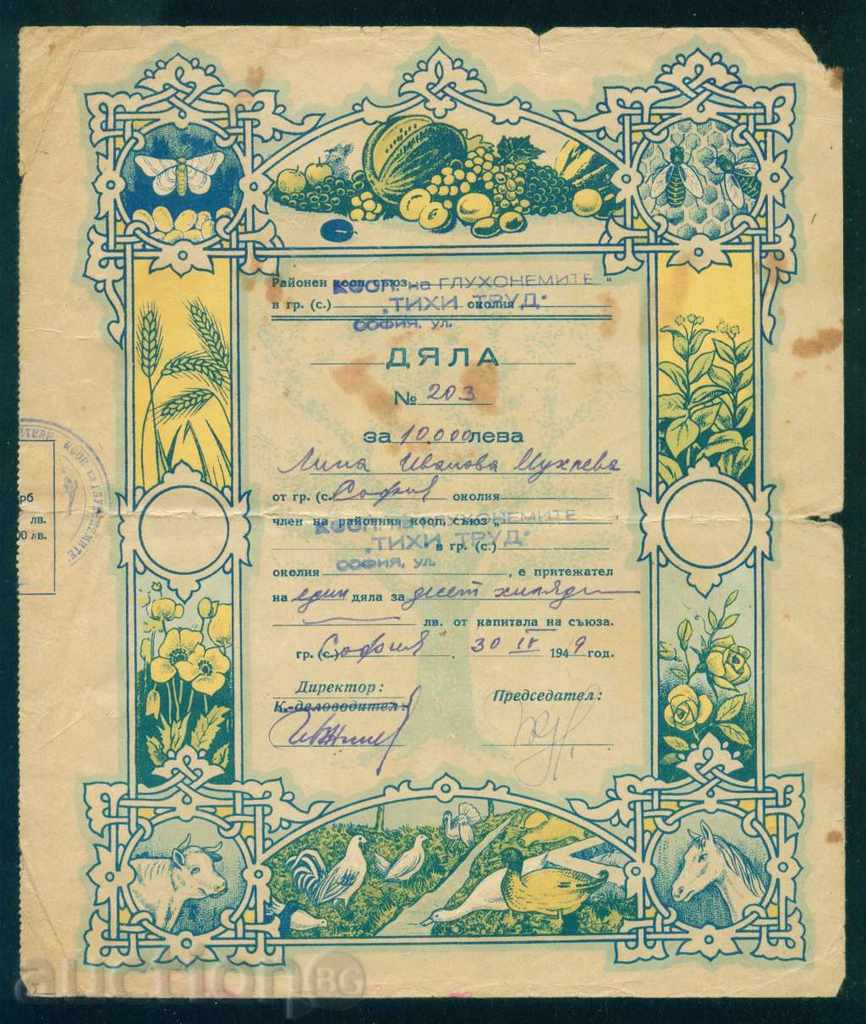 Районен кооп. съюз „
КООП. на ГЛУХОНЕМИТЕ
в гр. (с.) околия
„ТИХИ ТРУД“
СОФИЯ, ул.
ДЯЛА
№ 203
за 10,000 лева
Лина Иванова
от гр. (с.) София околия
член на районния кооп. съюз „
КООП. на ГЛУХОНЕМИТЕ
„ТИХИ ТРУД“
в гр. (с.)
СОФИЯ, ул.
околия , е притежател
на един дяла за десет хиляди
лв. от капитала на съюза.
гр. (с.) София , 30 IV 1949 год.
Директор: Председател:
К.-деловодител:
рб
лв.
00 лв.
КООП. НА ГЛУХОНЕМИТЕ
auction BG